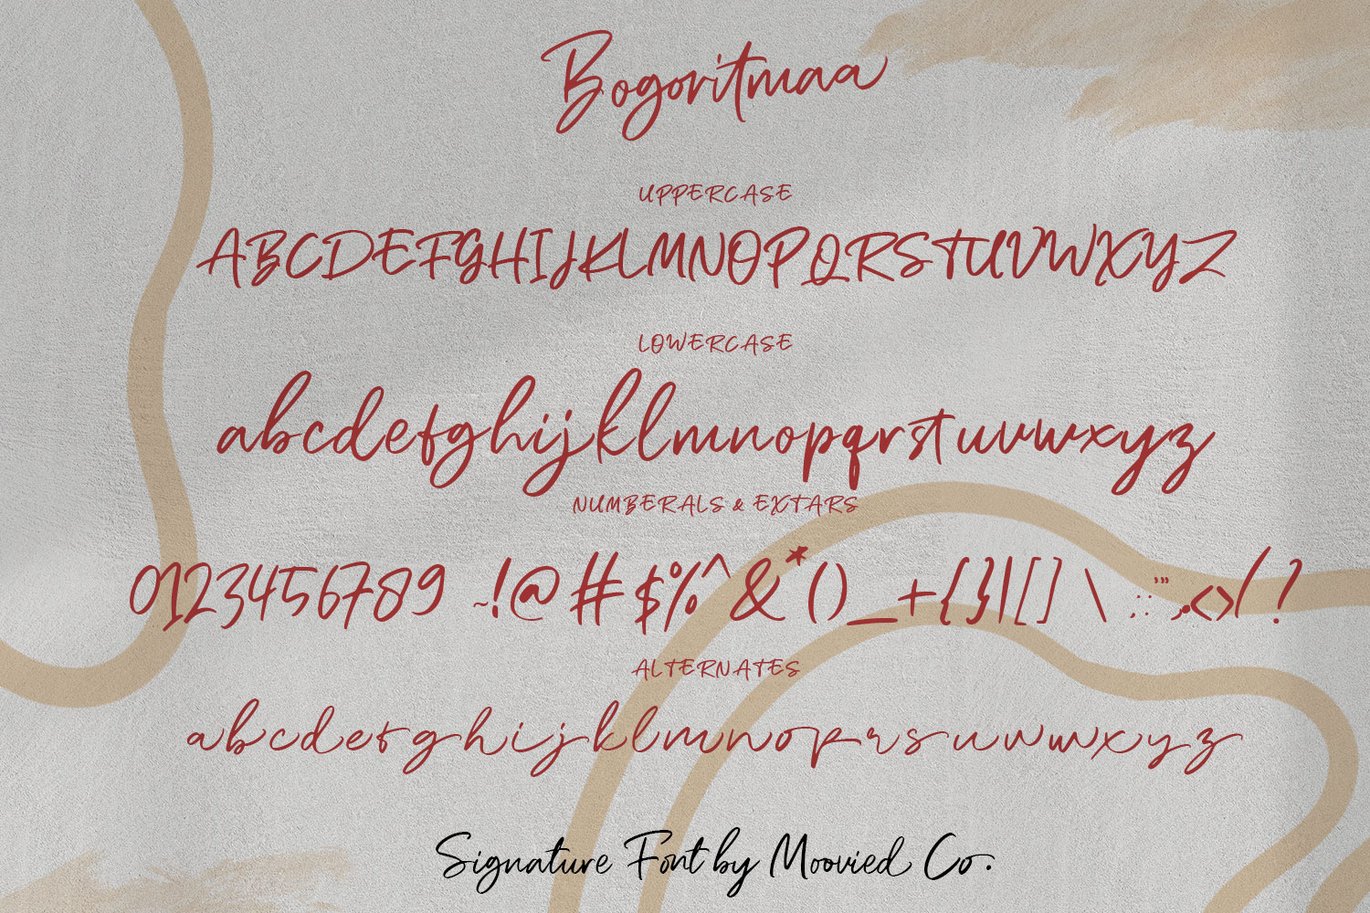 Bogoritmaa
UPPERCASE
ABCDEFGHIJKLMNOPQRSTUVWXYZ
LOWERCASE
abcdefghijklmnopqrstuvwxyz
NUMBERALS & EXTARS
0123456789 ~!@#$%^&*()_+{}|[] \ :;"',.<>/ ?
ALTERNATES
abcdefghijklmnoprsuvwxyz
Signature Font by Moovied Co.